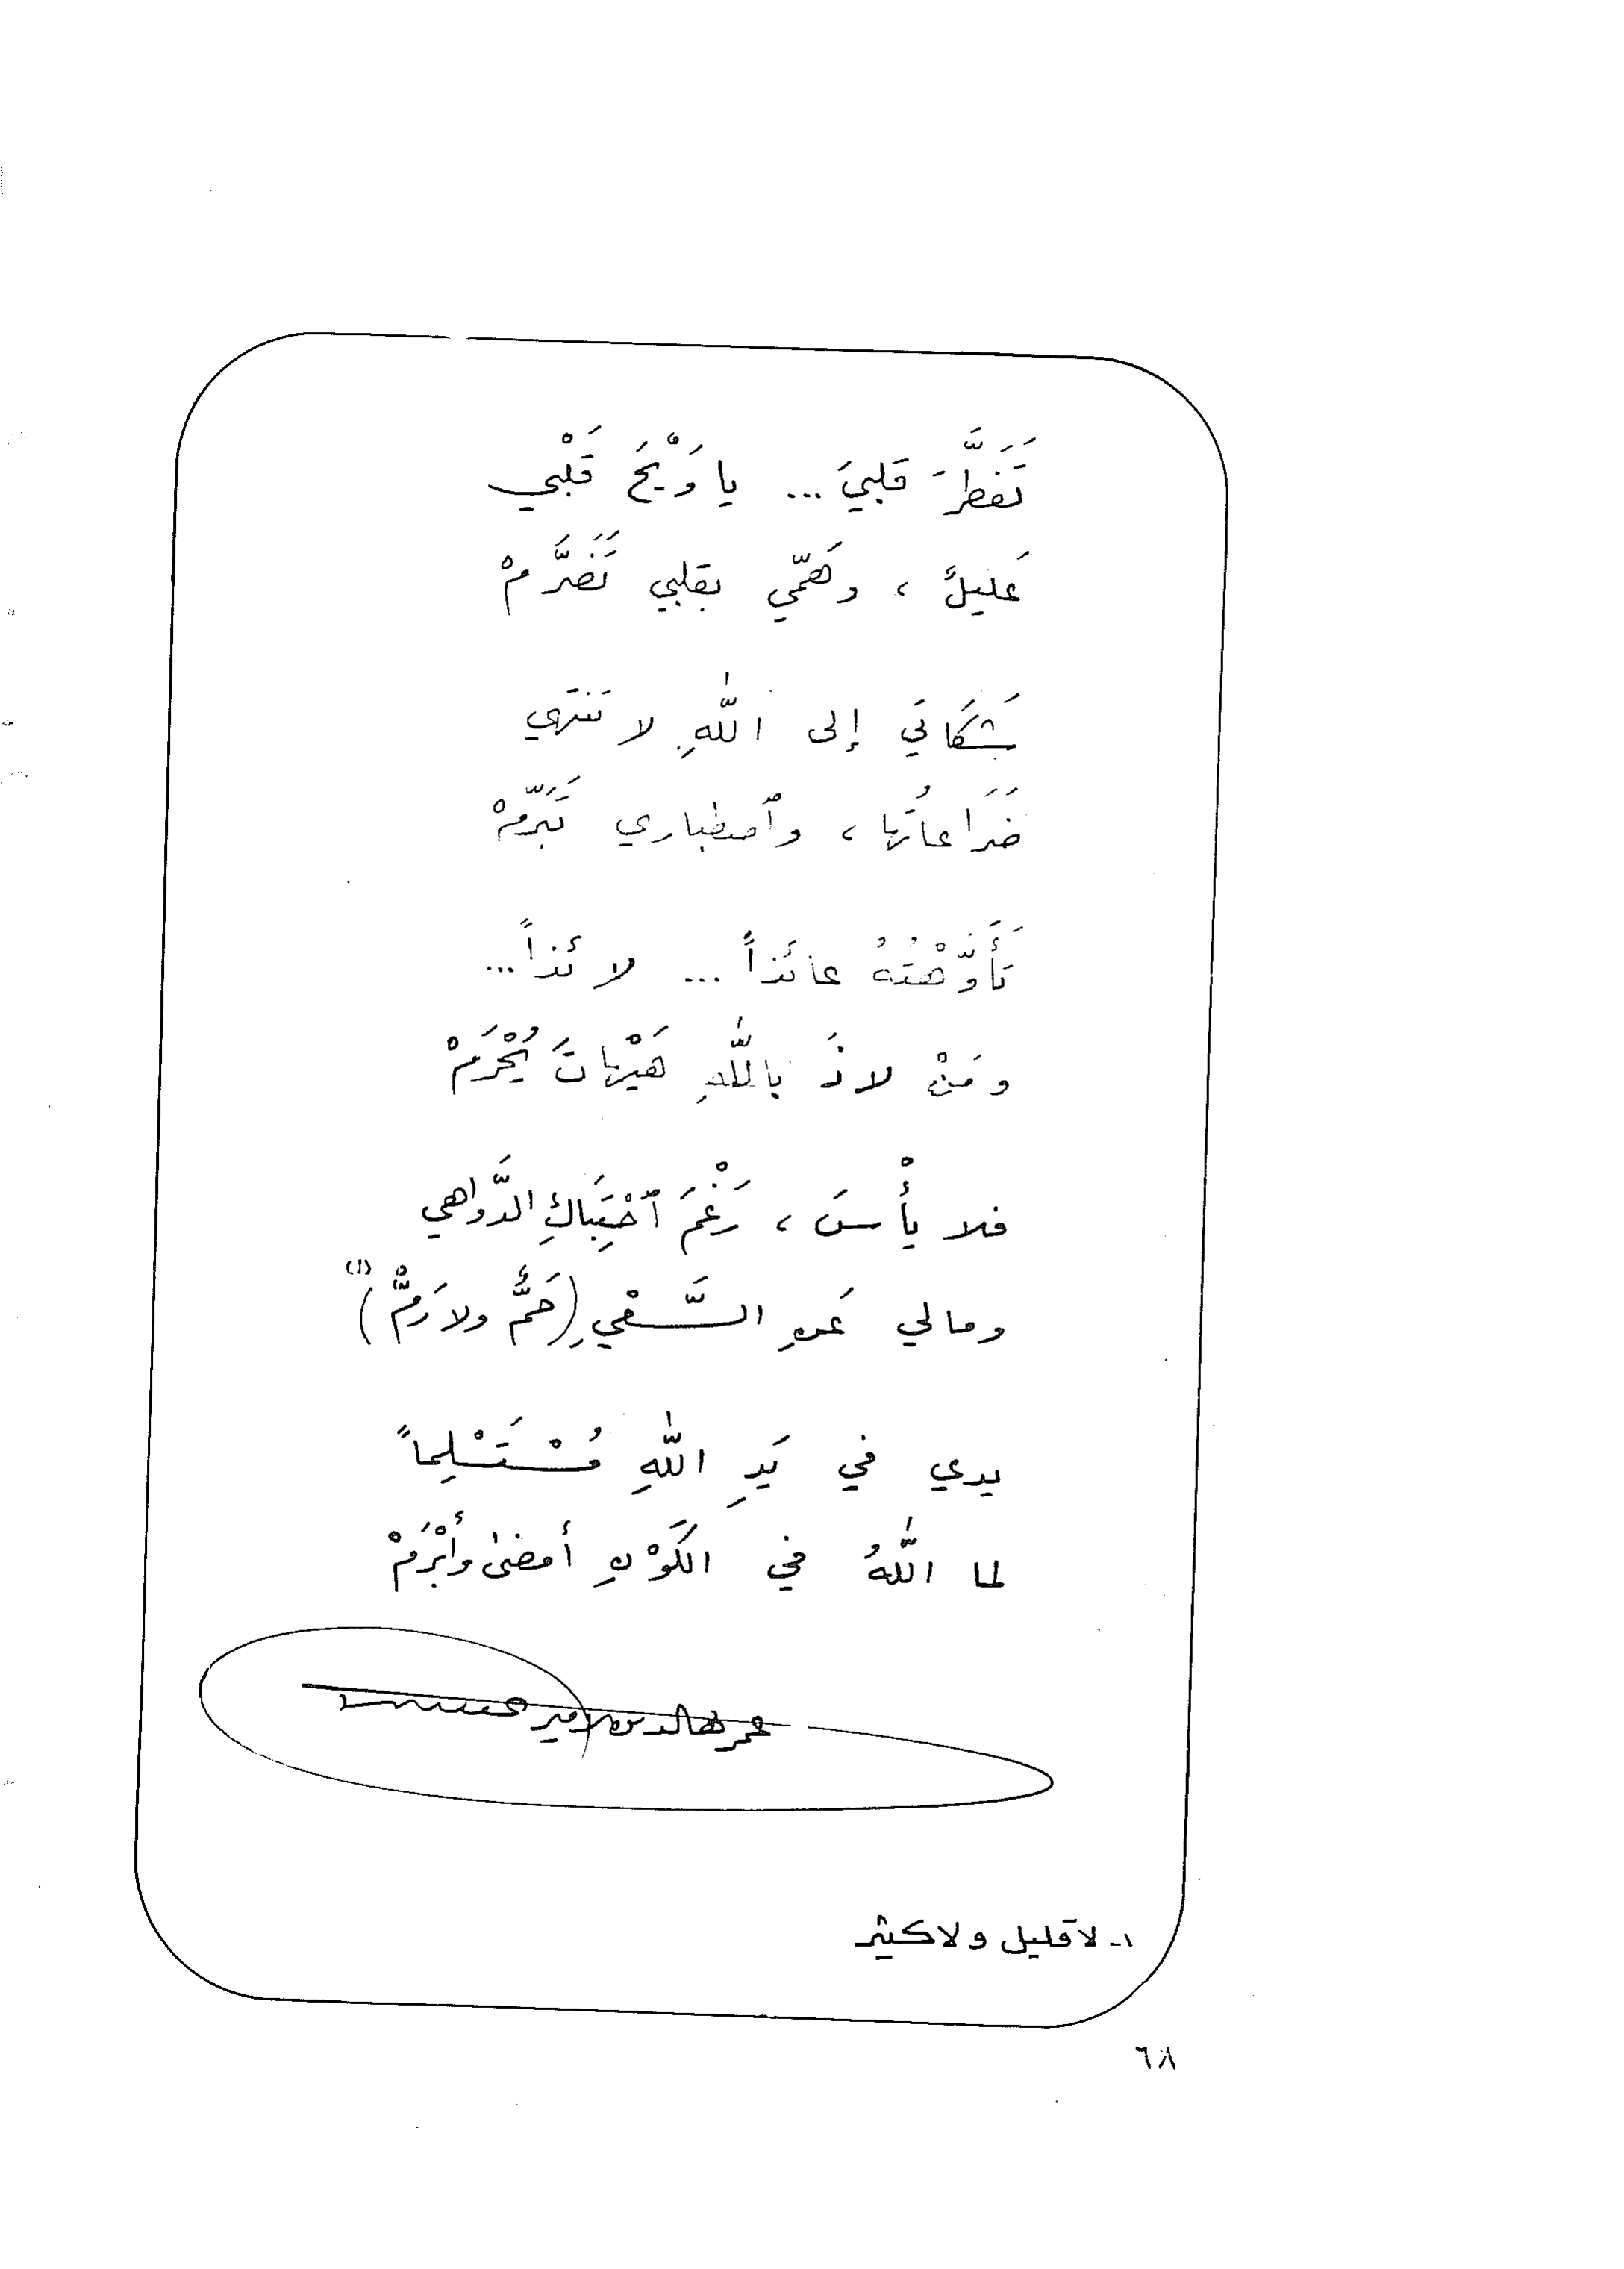 تَفَطَّرَ قلبيَ ... يا وَيْحَ قَلْبي
عَليلٌ ، وهَمّي بقلبي تَضَرَّمْ
شَكَاتي إلى اللهِ لا تَنتهي
ضَرَاعاتُها ، وٱصطباري تَبَرَّمْ
تَأَوَّهْتُهُ عائذاً ... لائذاً ...
ومَنْ لاذَ باللهِ هَيْهاتَ يُحْرَمْ
فلا يأْسَ ، رَغْمَ ٱحْتِبَاكِ الدَّواهي
ومالي عَنِ السَّعْيِ (حَمٌّ ولا رَمٌّ) (١)
يدي في يَدِ اللهِ مُسْتَسْلِماً
لما اللهُ في الكَوْنِ أمضىٰ وأَبْرَمْ
عمر بهاء الدين الأميري
١- لا قليل ولا كثير
٦٨